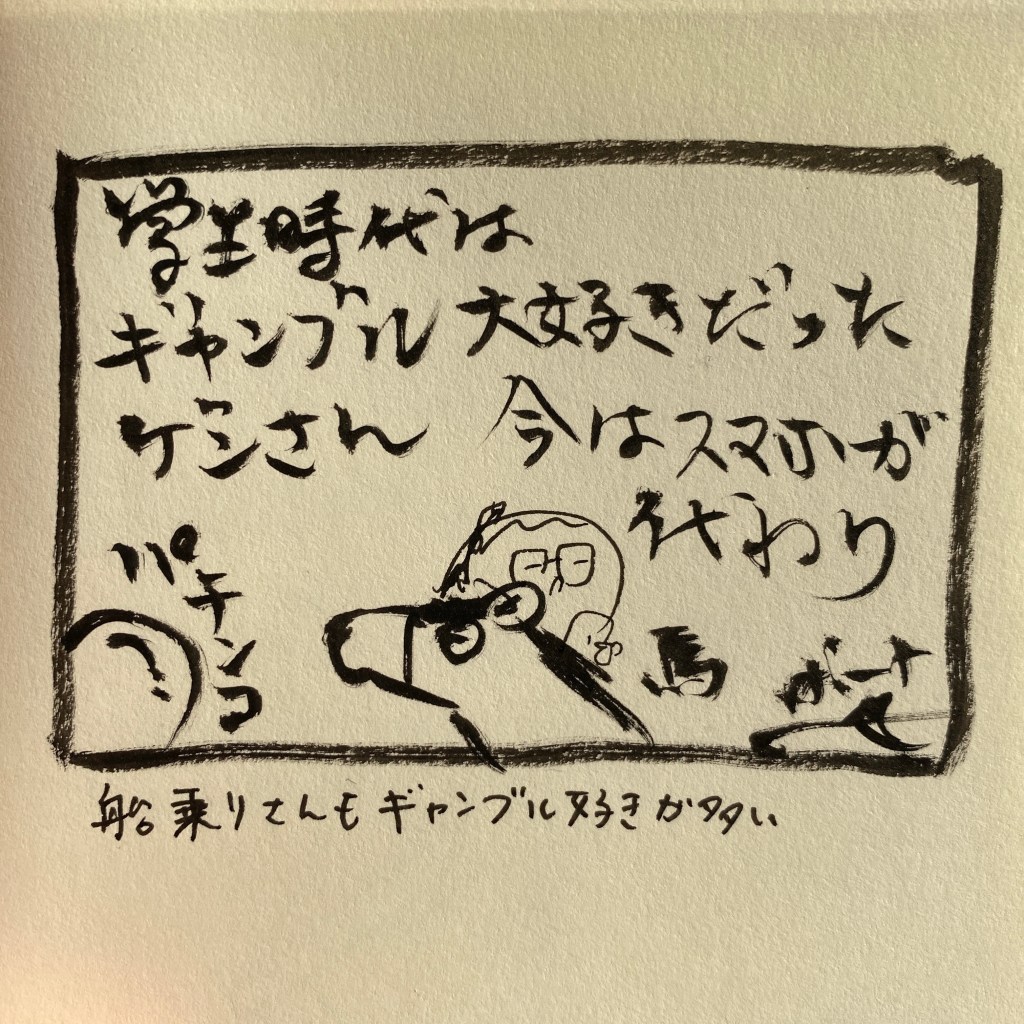 学生時代は
ギャンブル大好きだった
ケンさん 今はスマホが
代わり
パチンコ
馬
ボート
船乗りさんもギャンブル好きが多い